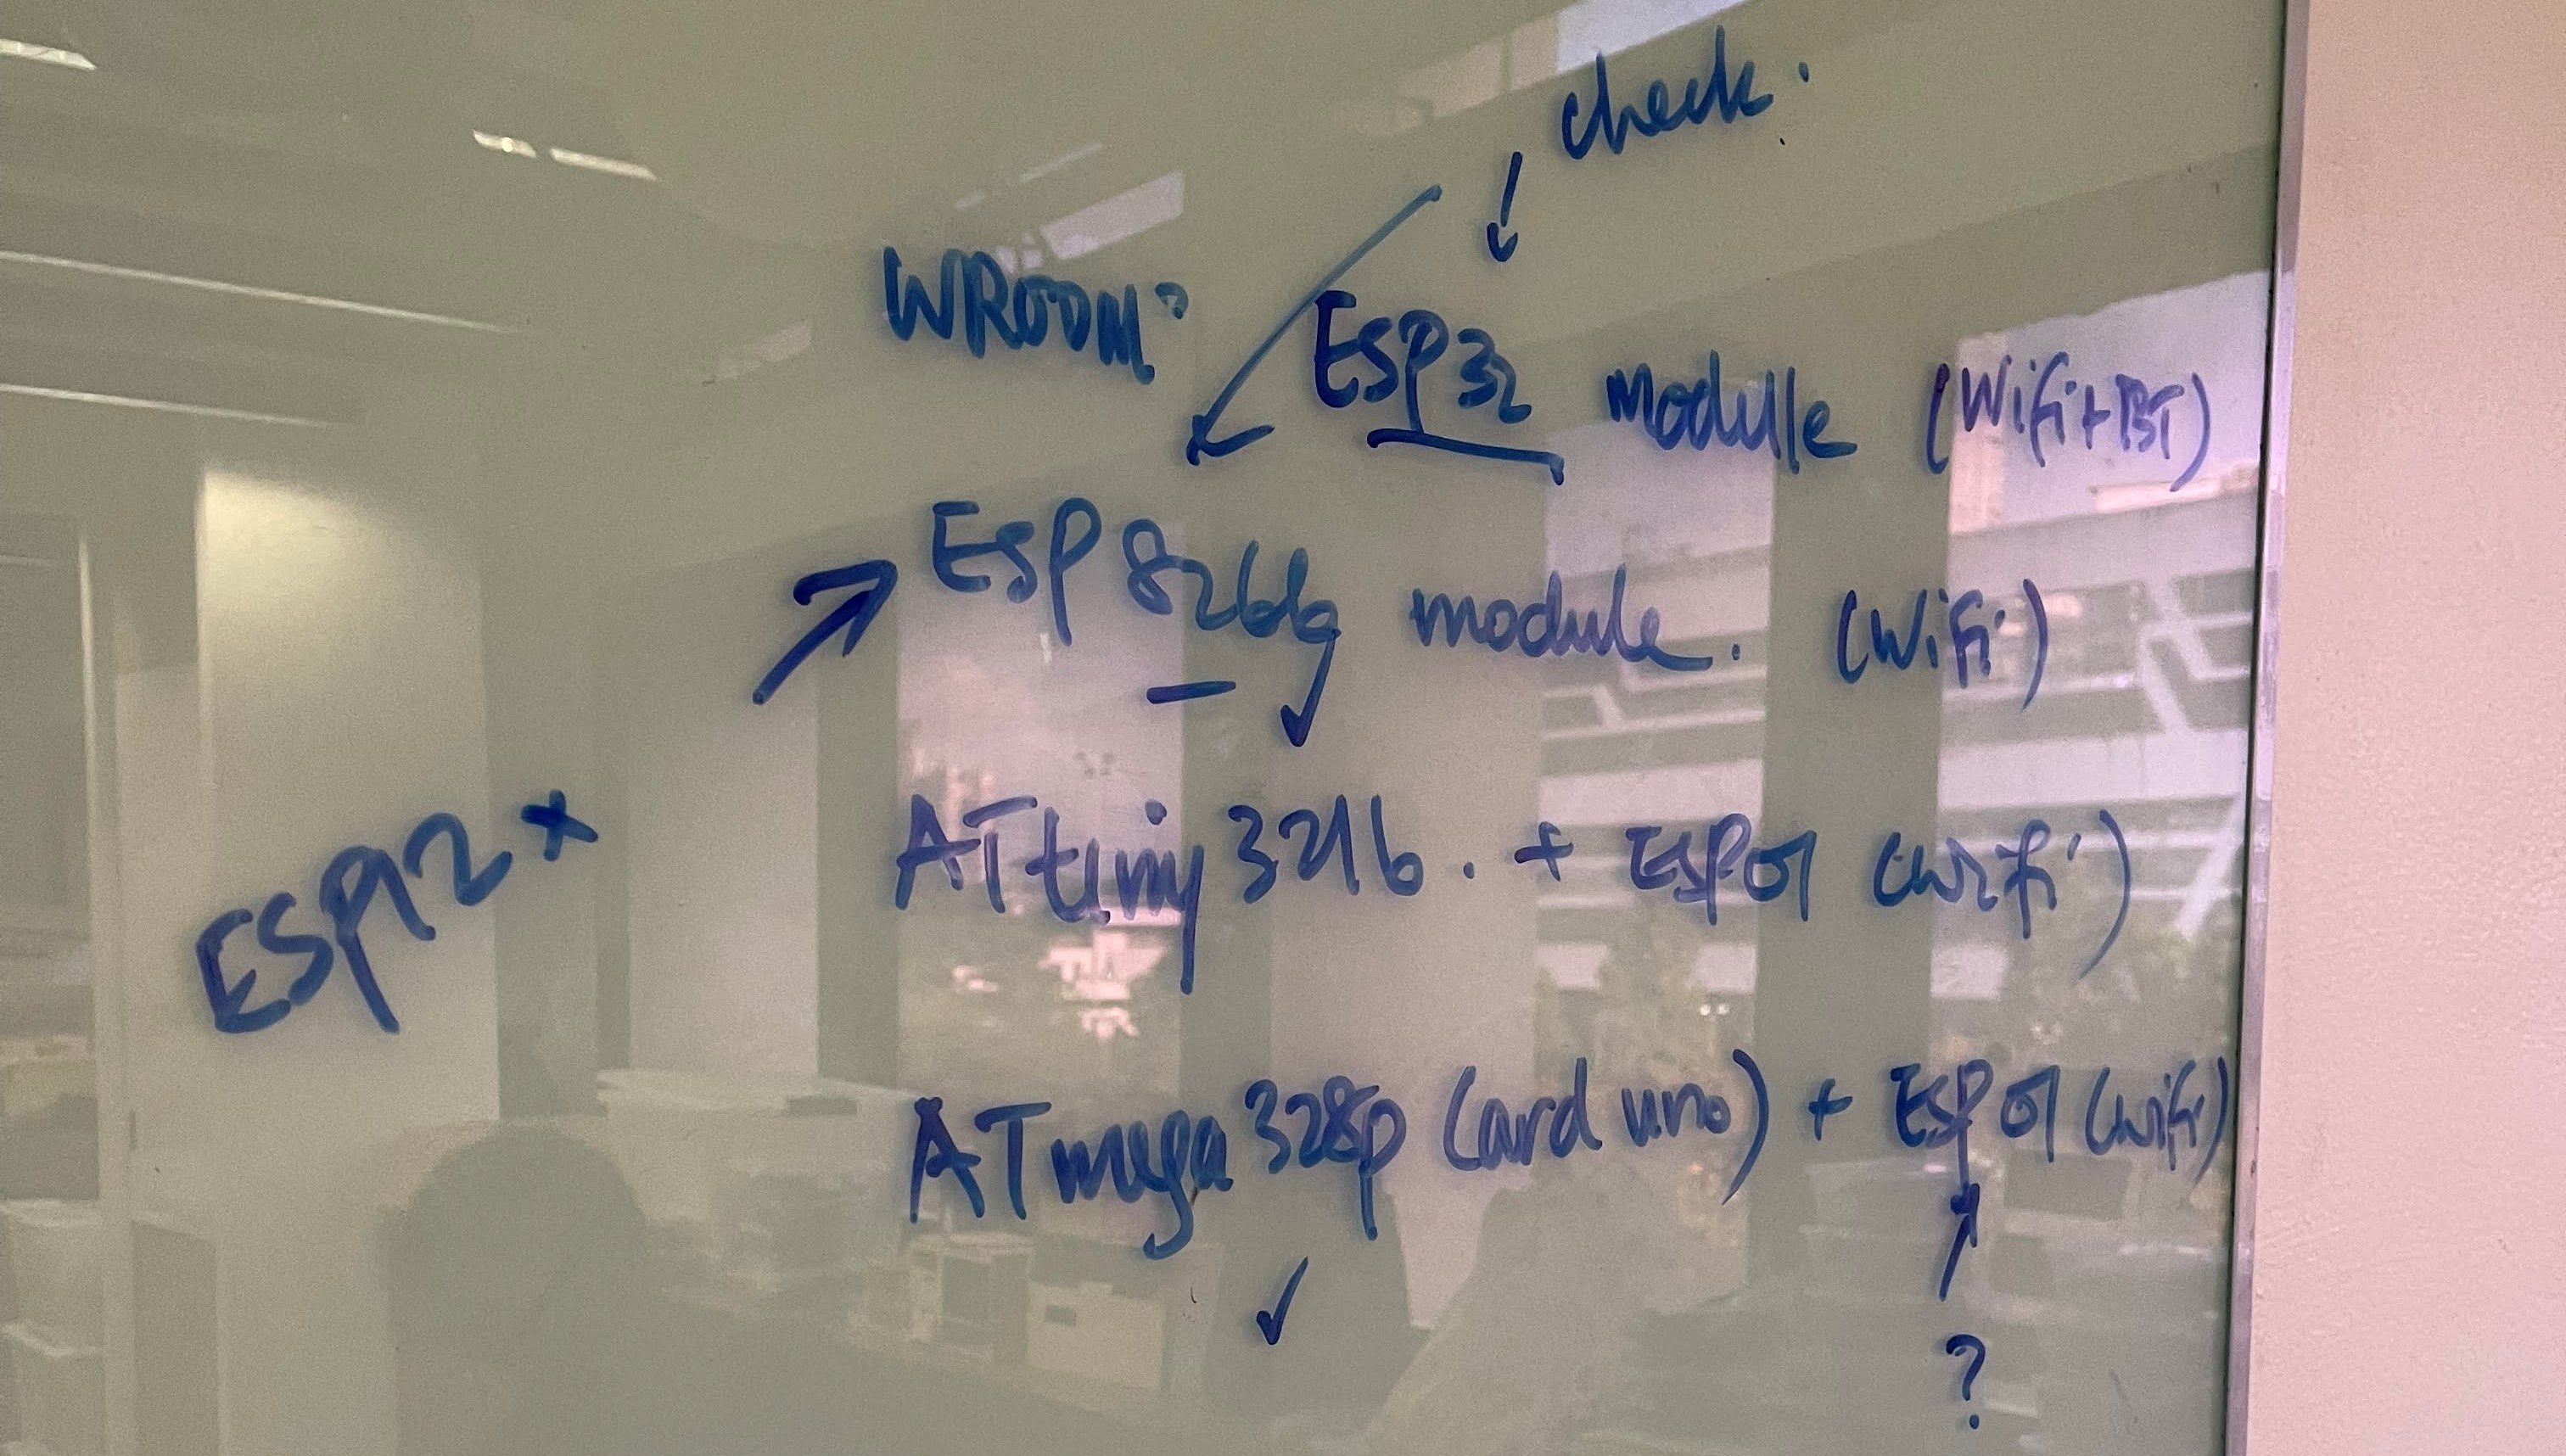 check.
WROOM?
ESP32 module (Wifi+BT)
ESP 8266 module. (Wifi)
ESP12 *
ATtiny 3216. + ESP01 (wifi)
ATmega 328p (ard uno) + ESP 01 (wifi)
?